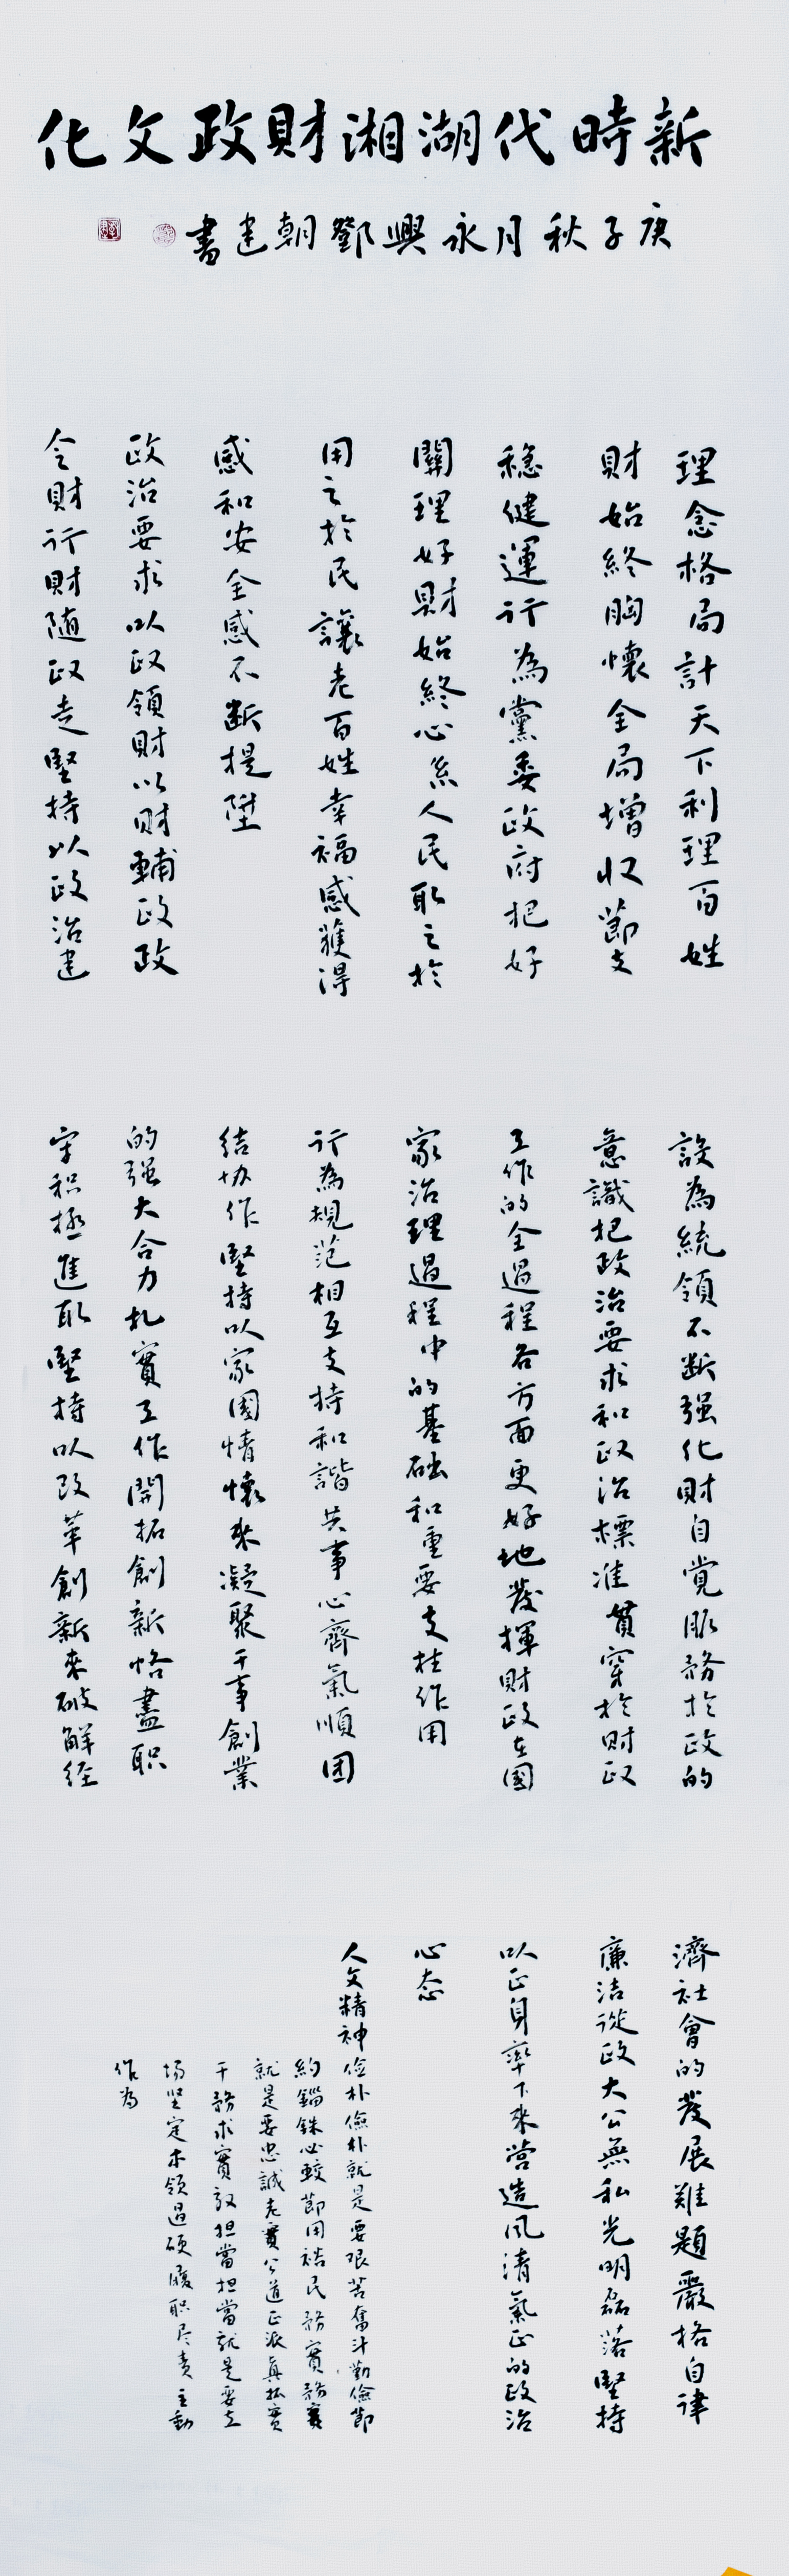 新時代湖湘財政文化
庚子秋月永興鄧朝建書
理念格局計天下利理百姓
財始終胸懷全局增收節支
穩健運行為黨委政府把好
關理好財始終心系人民取之於
用之於民讓老百姓幸福感獲得
感和安全感不斷提陞
政治要求以政領財以財輔政政
令財行財随政走堅持以政治建
設為統領不断强化財自覺服務於政的
意識把政治要求和政治標准貫穿於財政
工作的全過程各方面更好地發揮財政在國
家治理過程中的基础和重要支柱作用
行為規范相互支持和諧共事心齊氣順团
结协作堅持以家國情懷來凝聚干事創業
的强大合力扎實工作開拓創新恪盡职
守积極進取堅持以改革創新來破解经
濟社會的發展難題嚴格自律
廉洁從政大公無私光明磊落堅持
以正身率下來營造风清氣正的政治
心态
人文精神 儉朴儉朴就是要艰苦奮斗勤儉節
約錙銖必較節用裕民務實務實
就是要忠誠老實公道正派真抓實
干務求實效担當担當就是要立
場坚定本領過硬履职尽责主動
作為